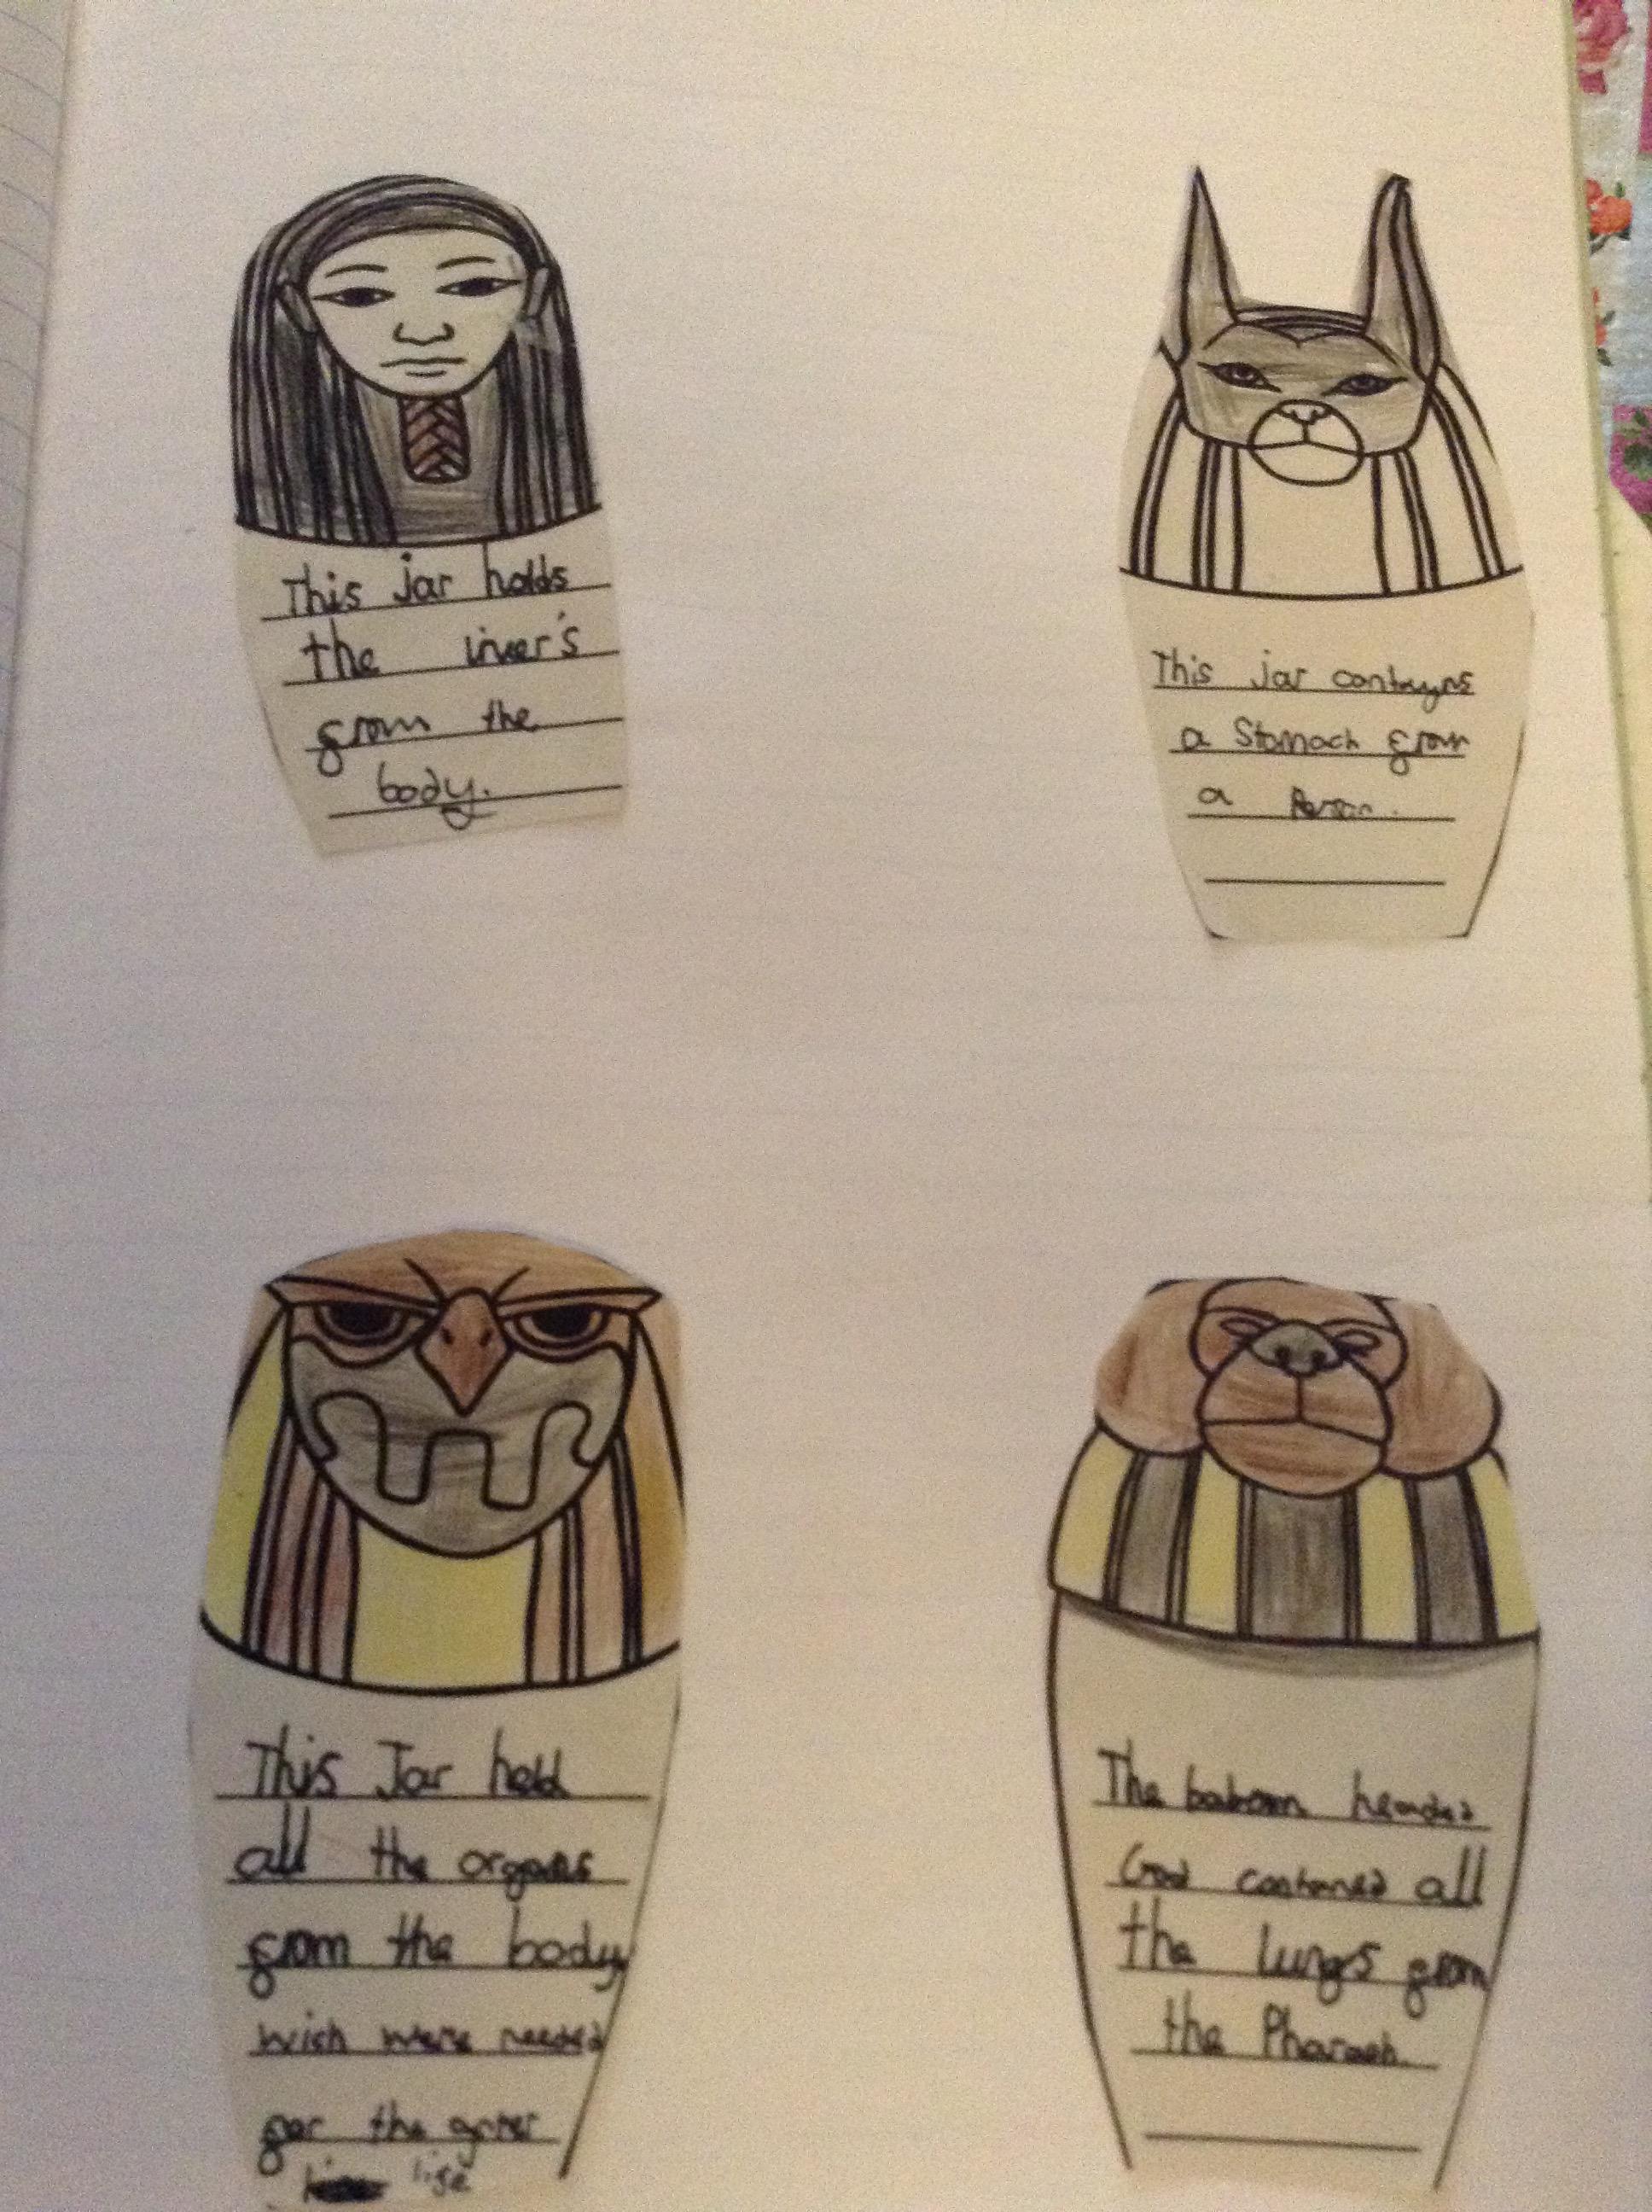 This jar holds
the liver's
from the
body.
This jar contayns
a Stomach from
a Person.
This Jar held
all the organs
from the body
wich were needed
for the after
life
The baboon headed
God contaned all
the lungs from
the Pharaoh.